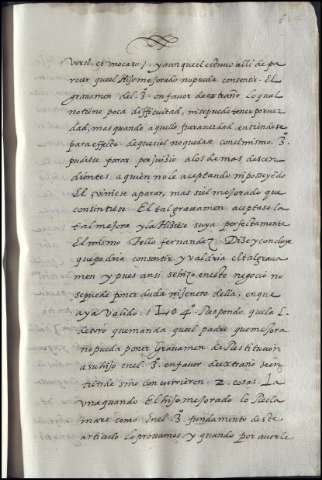 y aunque el mismo alli de pa
recer, que el Hijo mejorado no pueda consentir. El
grauamen del 3º. en fauor de extraño lo qual
no tiene poca dificultad, ni se puede tener por ver
dad, mas quando aquello fuera verdad, entiendese
para effecto de que si el no quedar con el mismo 3º.
pudiese parar perjuisio a los demas descen
dientes, a quien no le aceptando ni poseyédo
El viniese a parar, mas si el mejorado que
consintiese El tal grauamen aceptase la
tal mejora y la Hisiese suya perfectamente
El mismo Tello fernandez Dise y concluye
que podria consentir y valdria el tal graua
men y pues ansi se hizo en este negocio no
se puede poner duda ni menos della, en que
aya valido. Respondo que la L.
de toro que manda quel padre que mejora
no pueda poner grauamen de Restitucion
a su hijo en el 3º. en fauor de extraño se en
tiende sino concurrieren 2. cosas La
una quando El hijo mejorado lo Recla
mare como en el 3º. fundamento deste
articulo lo prouamos, y quando por auerle